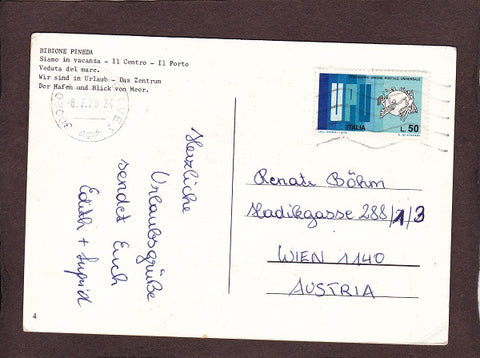 BIBIONE PINEDA
Siamo in vacanza - Il Centro - Il Porto
Veduta del mare.
Wir sind in Urlaub - Das Zentrum
Der Hafen und Blick von Meer.
8.7.75-24
UPU
ITALIA
L. 50
Herzliche
Urlaubsgrüße
sendet Euch
Edith + Ingrid
Renate Böhm
Hadikgasse 288/1/3
WIEN 1140
AUSTRIA
4